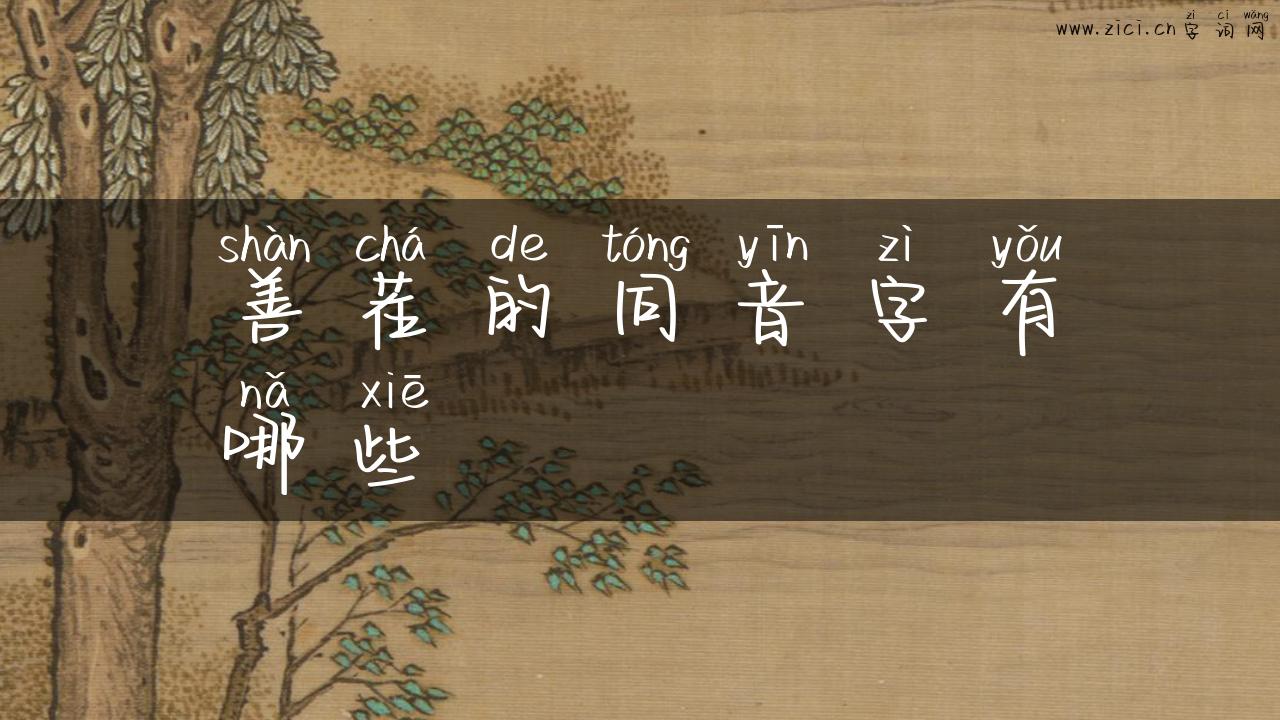 zì cí wǎng
www.zici.cn 字词网
shàn chá de tóng yīn zì yǒu
善茬的同音字有
nǎ xiē
哪些